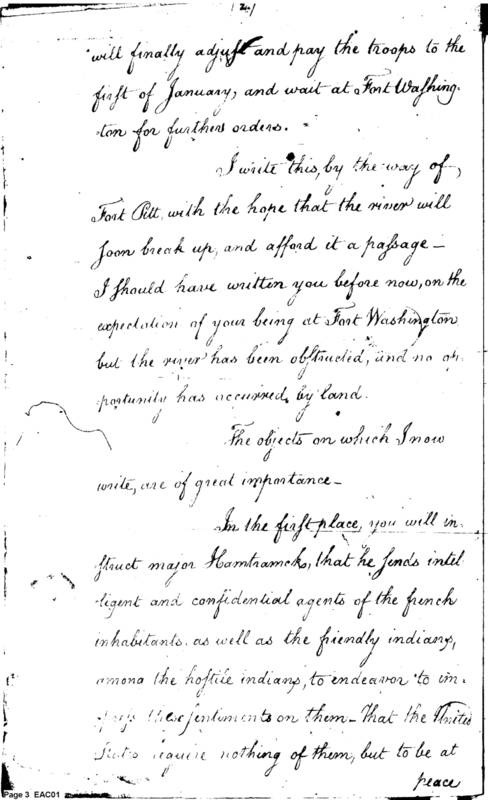 2/
will finally adjust and pay the troops to the
first of January, and wait at Fort Washing-
ton for further orders.
I write this, by the way of,
Fort Pitt, with the hope that the river will
soon break up, and afford it a passage—
I should have written you before now, on the
expectation of your being at Fort Washington
but the river has been obstructed, and no op-
portunity has occurred, by land.
The objects on which I now
write, are of great importance—
In the first place, you will in-
struct major Hamtramck, that he sends intel-
ligent and confidential agents of the french
inhabitants. as well as the friendly indians,
among the hostile indians, to endeavor to im-
press these sentiments on them— That the United
States require nothing of them, but to be at
peace
Page 3 EAC01